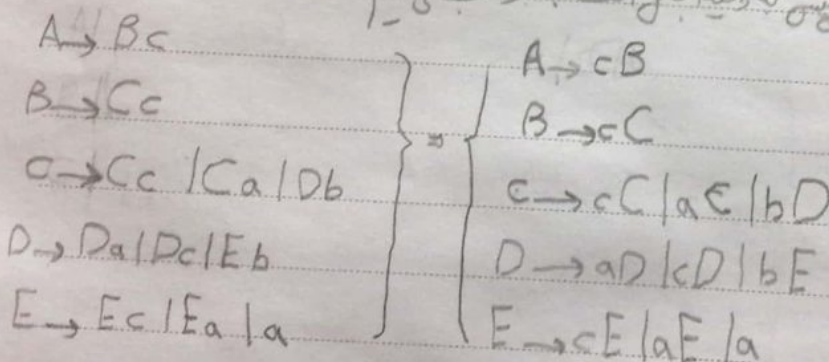 A → Bc
B → Cc
C → Cc | Ca | Db
D → Da | Dc | Eb
E → Ec | Ea | a
⇒
A → cB
B → cC
C → cC | aC | bD
D → aD | cD | bE
E → cE | aE | a